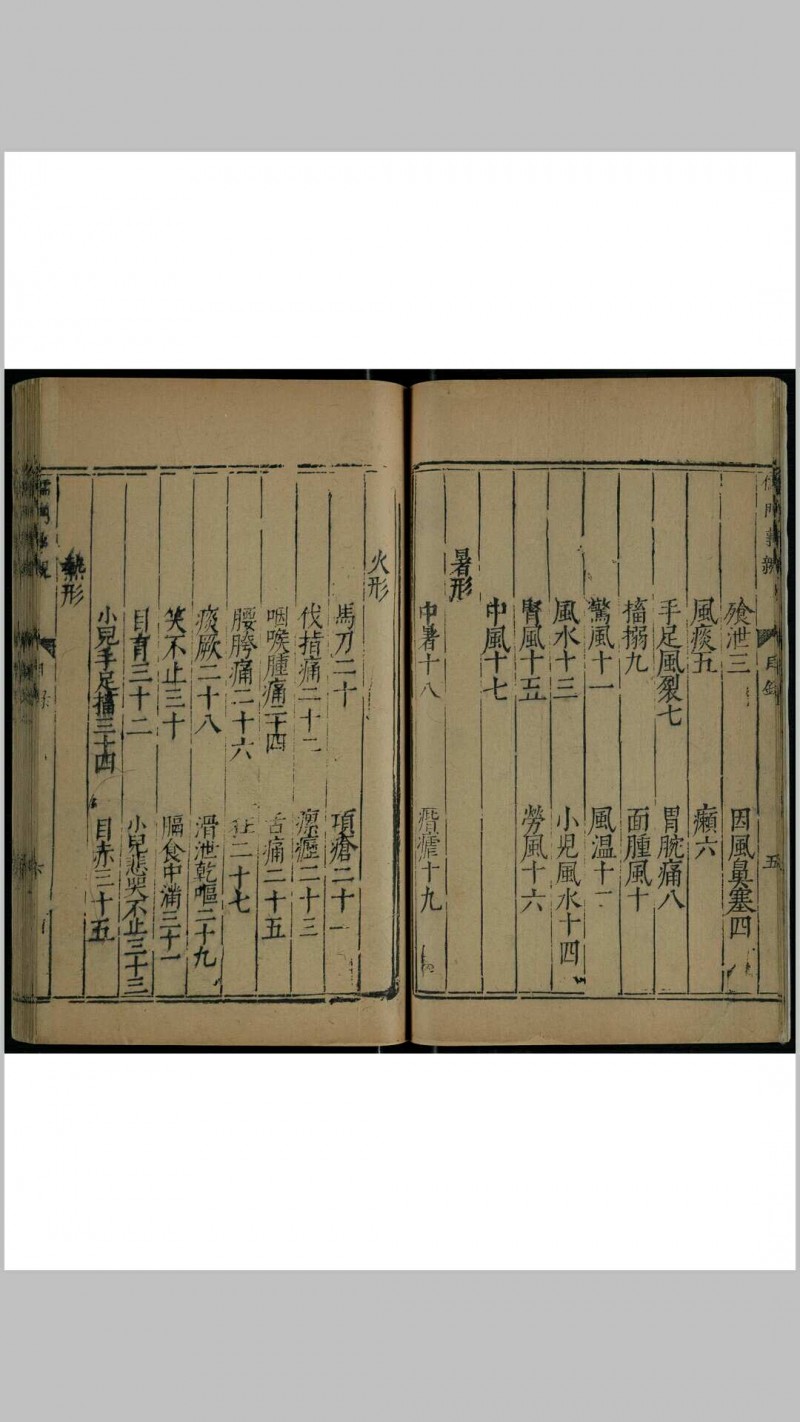 儒門事親 目錄 五
飱泄三 因風鼻塞四
風痰五 癩六
手足風裂七 胃脘痛八
搐搦九 面腫風十
驚風十一 風温十二
風水十三 小兒風水十四
腎風十五 勞風十六
中風十七
暑形
中暑十八 痎瘧十九
火形
馬刀二十 項瘡二十一
伐指痛二十二 瘰癧二十三
咽喉腫痛二十四 舌痛二十五
腰胯痛二十六 狂二十七
痰厥二十八 滑泄乾嘔二十九
笑不止三十 膈食中滿三十一
目盲三十二 小兒悲哭不止三十三
小兒手足搐三十四 目赤三十五
熱形